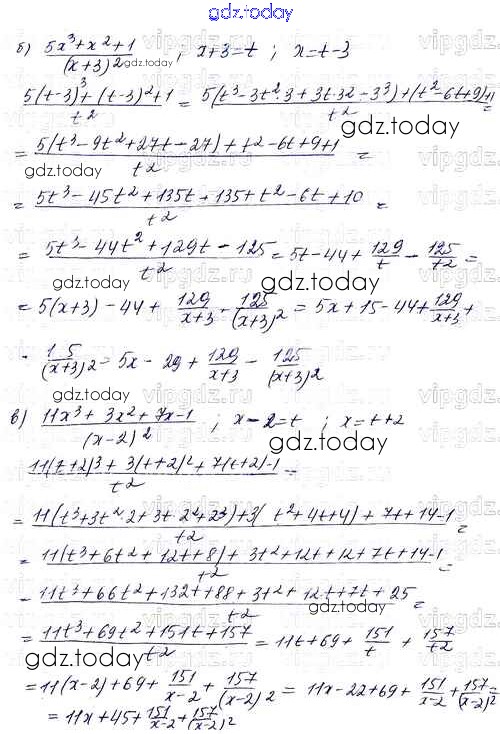 gdz.today
б) (5x³+x²+1)/(x+3)² ; x+3=t ; x=t-3
(5(t-3)³+(t-3)²+1)/t² = (5(t³-3t²·3+3t·3²-3³)+(t²-6t+9)+1)/t² =
= (5(t³-9t²+27t-27)+t²-6t+9+1)/t² =
= (5t³-45t²+135t+135+t²-6t+10)/t² =
= (5t³-44t²+129t-125)/t² = 5t-44+129/t-125/t² =
= 5(x+3)-44+129/(x+3)-125/(x+3)² = 5x+15-44+129/(x+3)+
- 15/(x+3)² = 5x-29+129/(x+3)-125/(x+3)²
в) (11x³+3x²+7x-1)/(x-2)² ; x-2=t ; x=t+2
(11(t+2)³+3(t+2)²+7(t+2)-1)/t² =
= (11(t³+3t²·2+3t·2²+2³)+3(t²+4t+4)+7t+14-1)/t² =
= (11(t³+6t²+12t+8)+3t²+12t+12+7t+14-1)/t² =
- (11t³+66t²+132t+88+3t²+12t+7t+25)/t² =
= (11t³+69t²+151t+157)/t² = 11t+69+151/t+157/t²
= 11(x-2)+69+151/(x-2)+157/(x-2)² = 11x-22+69+151/(x-2)+157/(x-2)² =
= 11x+45+151/(x-2)+157/(x-2)²